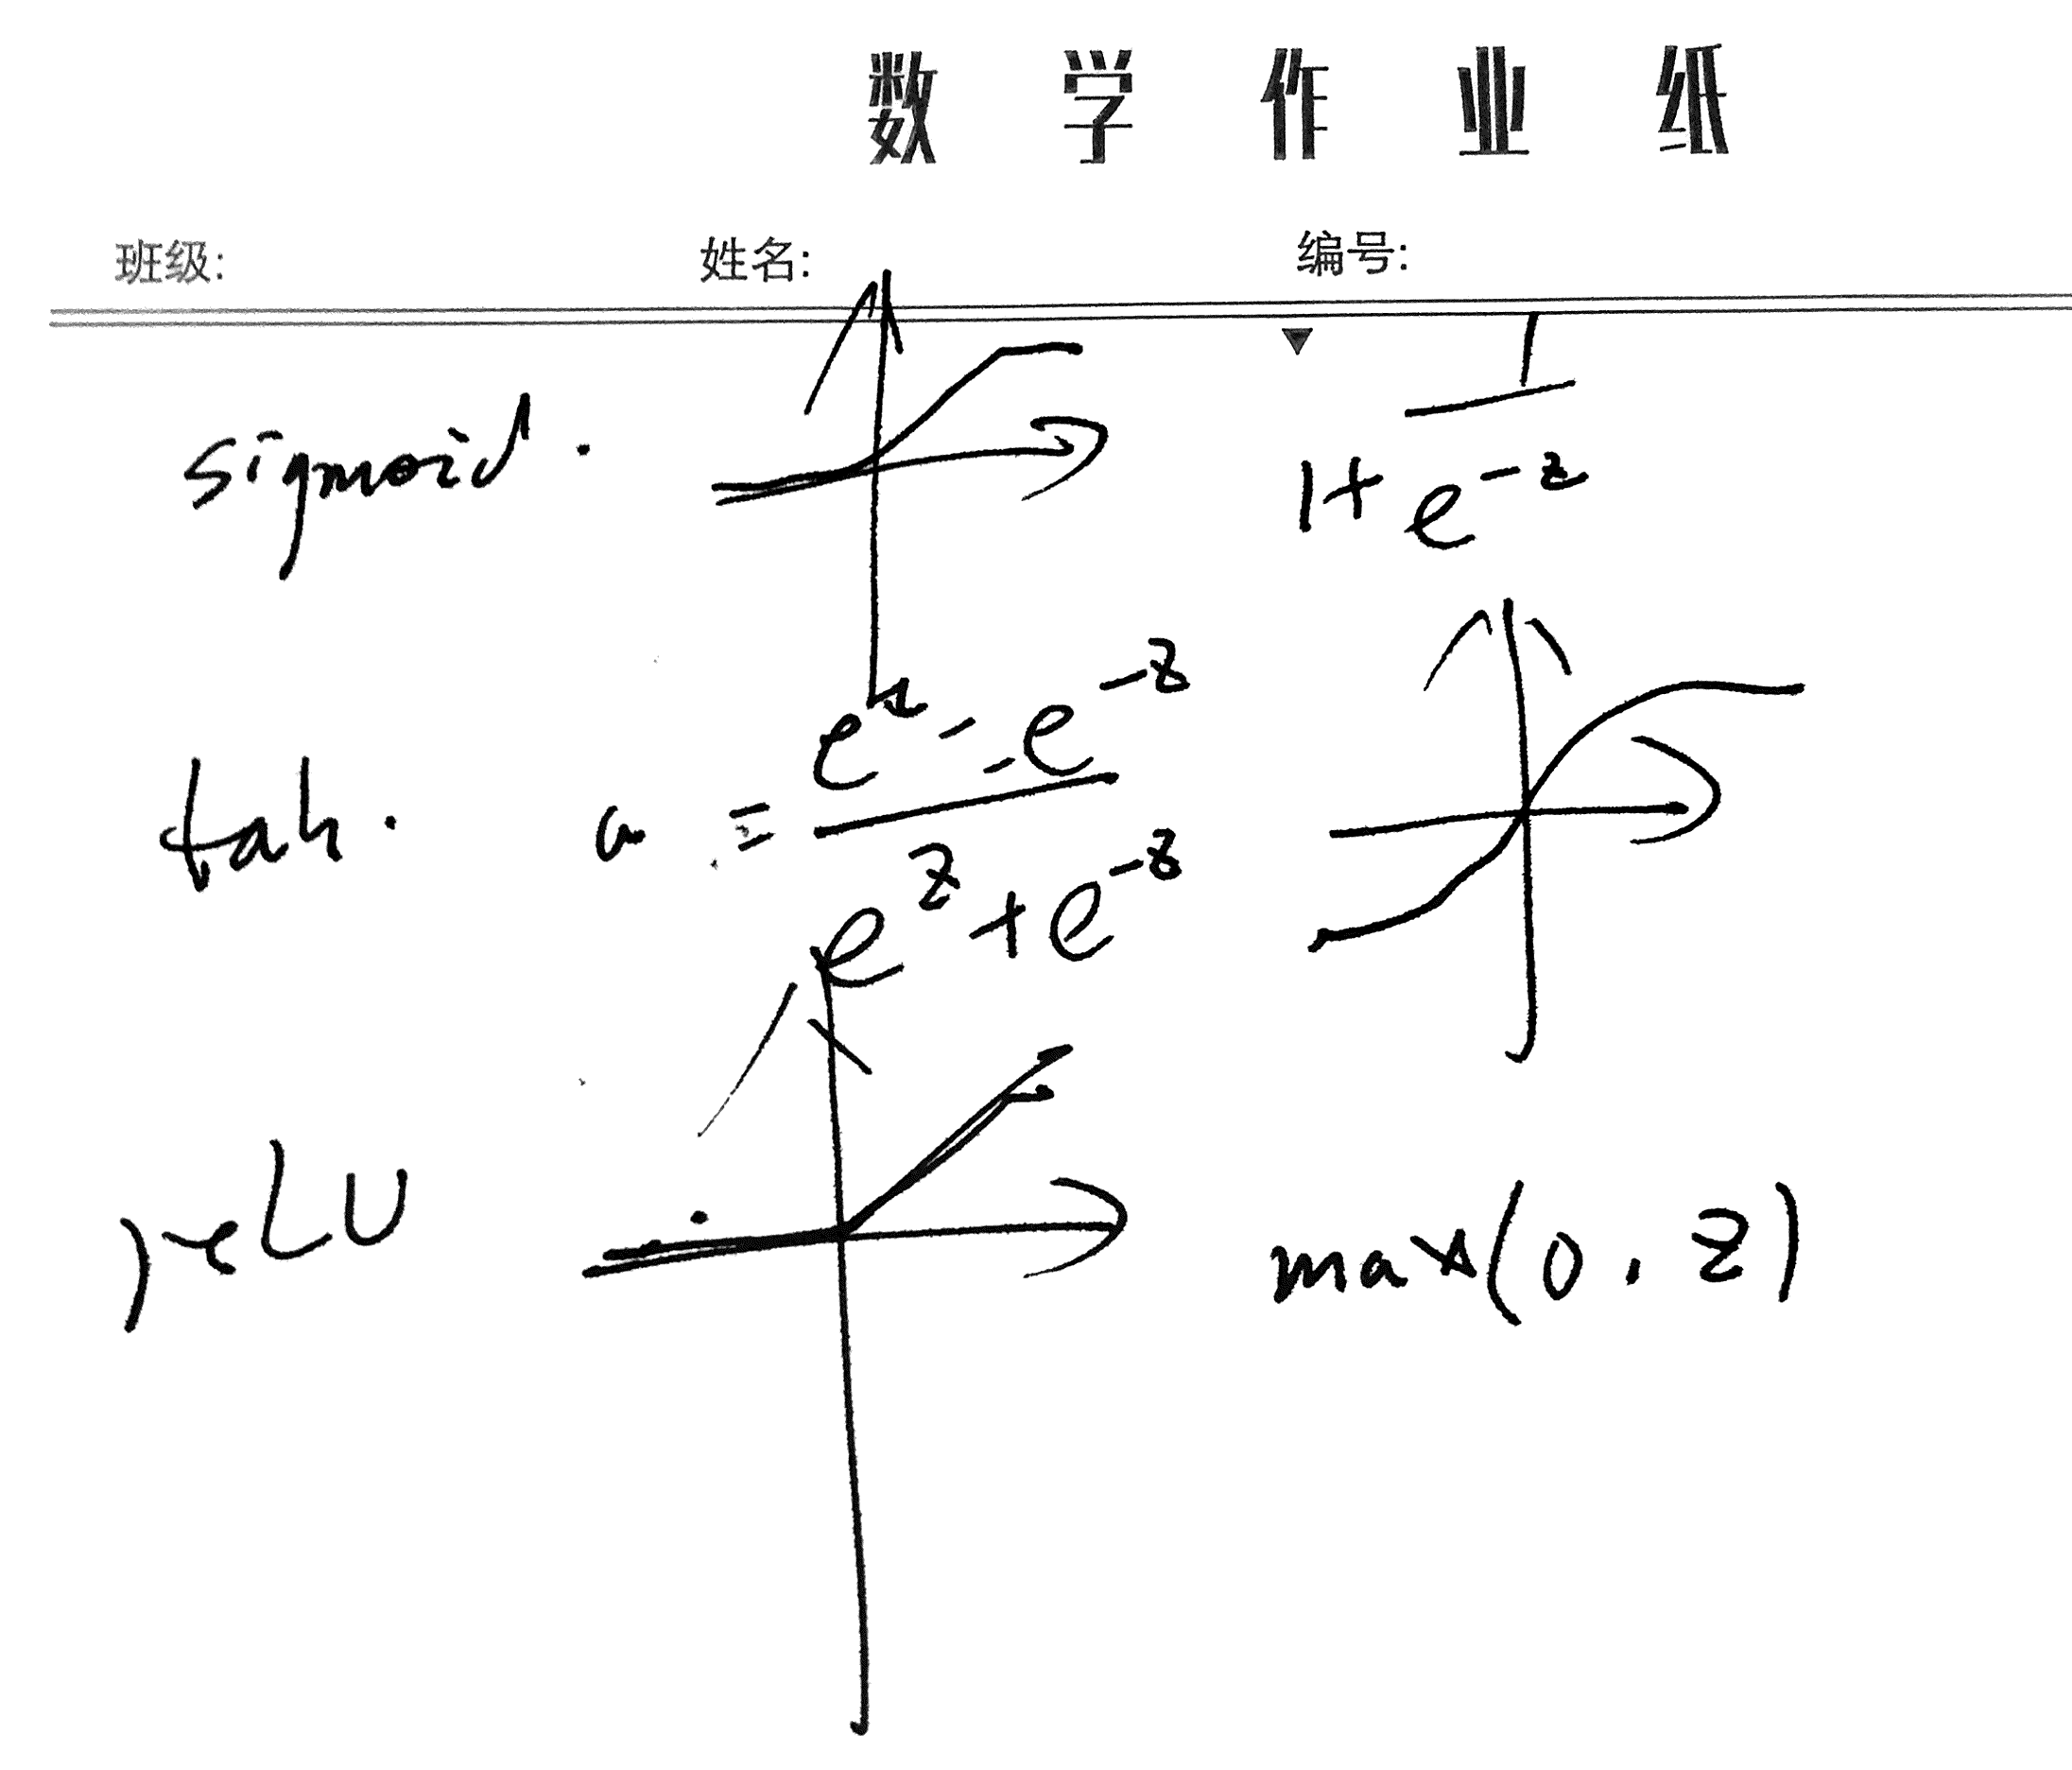 数学作业纸
班级: 姓名: 编号:
sigmoid. 1/(1+e^-z)
tah. a = (e^z - e^-z)/(e^z + e^-z)
reLU max(0, z)